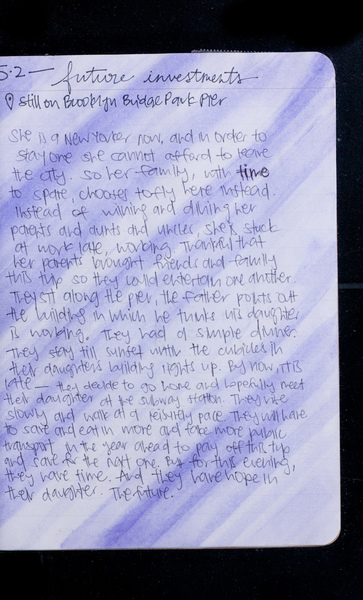 5.2 — future investments
still on Brooklyn Bridge Park Pier
She is a New Yorker now, and in order to
stay one she cannot afford to leave
the city. So her family, with time
to spare, chooses to fly here instead.
Instead of wining and dining her
parents and aunts and uncles, she's stuck
at work late, working. Thankful that
her parents brought friends and family
this trip so they could entertain one another.
They sit along the pier, the father points out
the building in which he thinks his daughter
is working. They had a simple dinner.
They stay till sunset until the cubicles in
their daughters building lights up. By now, it is
late — they decide to go home and hopefully meet
their daughter at the subway station. They rise
slowly and walk at a leisurely pace. They will have
to save and eat in more and take more public
transport in the year ahead to pay off this trip
and save for the next one. But for this evening,
they have time. And they have hope in
their daughter. The future.